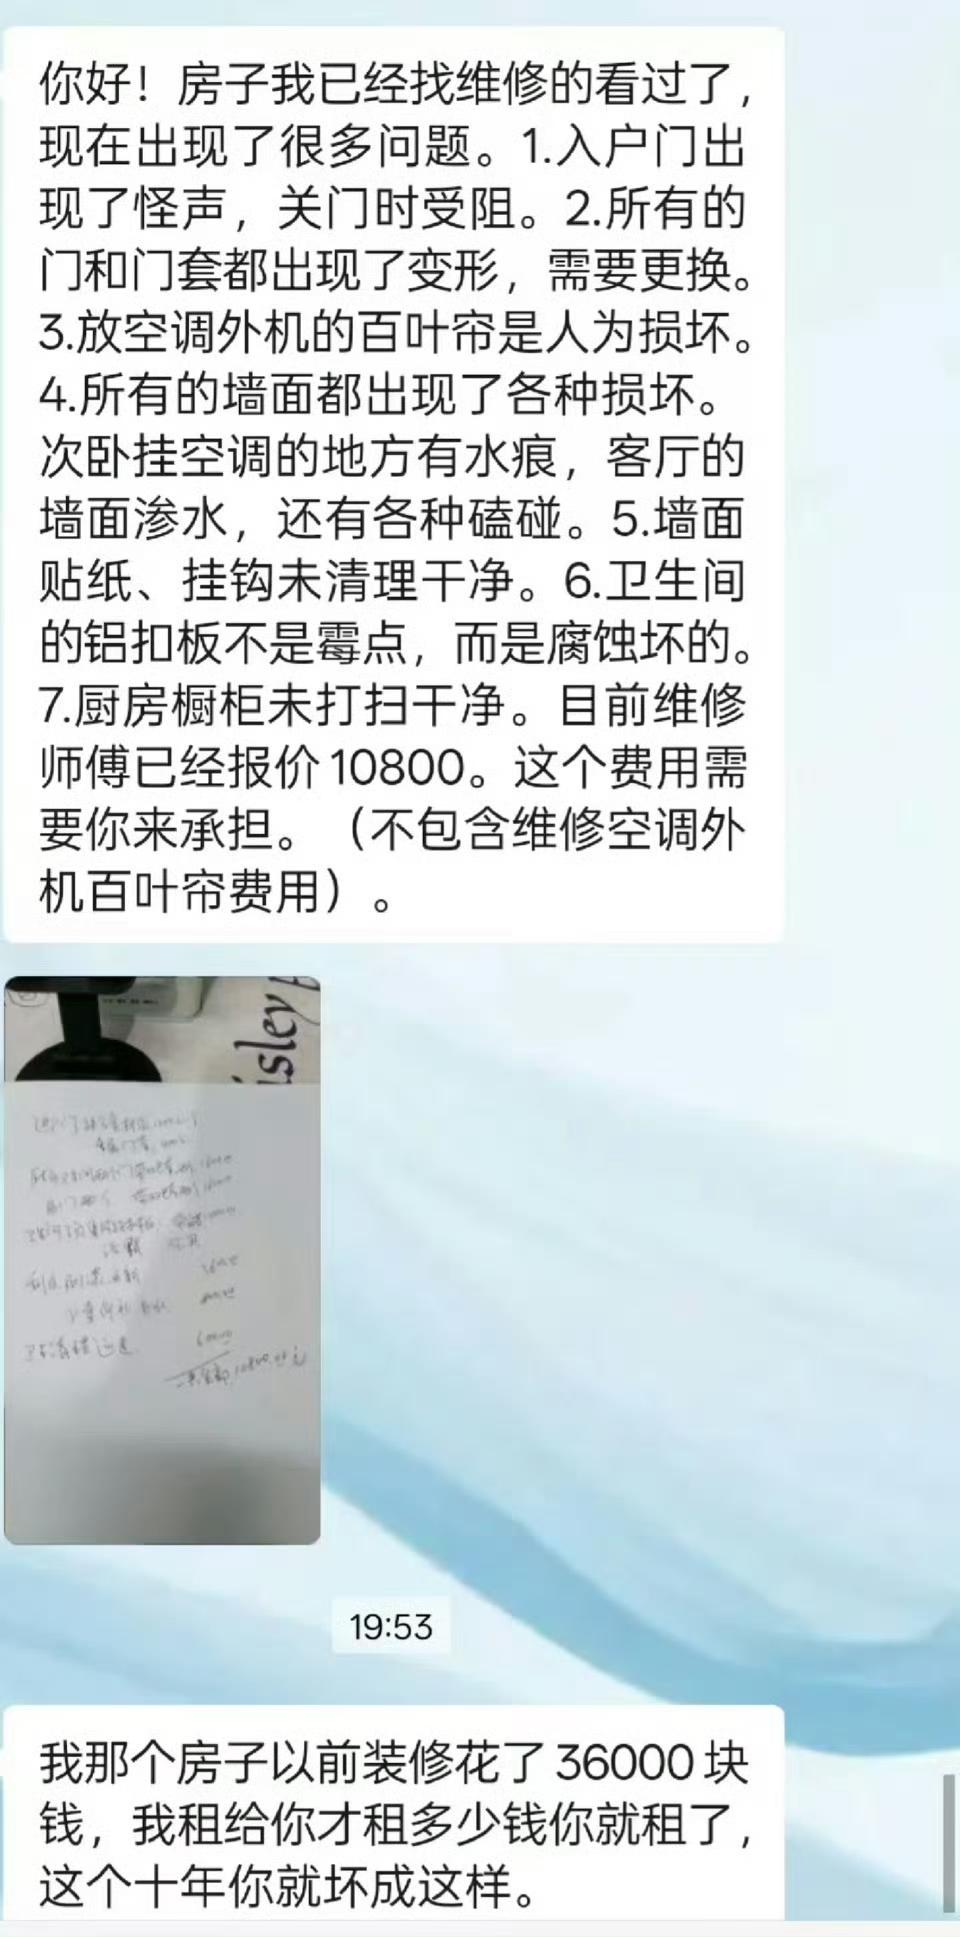 你好！房子我已经找维修的看过了，
现在出现了很多问题。1.入户门出
现了怪声，关门时受阻。2.所有的
门和门套都出现了变形，需要更换。
3.放空调外机的百叶帘是人为损坏。
4.所有的墙面都出现了各种损坏。
次卧挂空调的地方有水痕，客厅的
墙面渗水，还有各种磕碰。5.墙面
贴纸、挂钩未清理干净。6.卫生间
的铝扣板不是霉点，而是腐蚀坏的。
7.厨房橱柜未打扫干净。目前维修
师傅已经报价10800。这个费用需
要你来承担。（不包含维修空调外
机百叶帘费用）。
19:53
我那个房子以前装修花了36000块
钱，我租给你才租多少钱你就租了，
这个十年你就坏成这样。